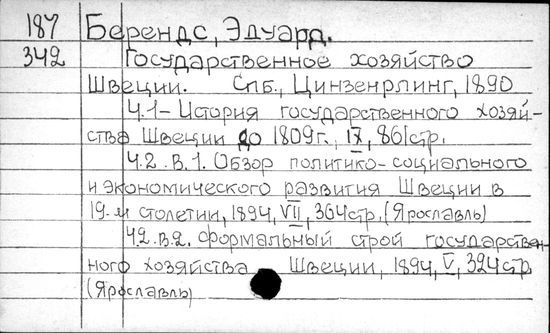 187 Берендс, Эдуард.
342 Государственное хозяйство
Швеции. Спб., Цинзенрлинг, 1890
Ч.1 – История государственного хозяй-
ства Швеции до 1809г., IX, 861стр.
Ч.2. В.1. Обзор политико-социального
и экономического развития Швеции в
19-м столетии, 1894, VII, 364стр. (Ярославль)
Ч.2. в.2. Формальный строй государствен-
ного хозяйства Швеции, 1894, V, 324стр.
(Ярославль)